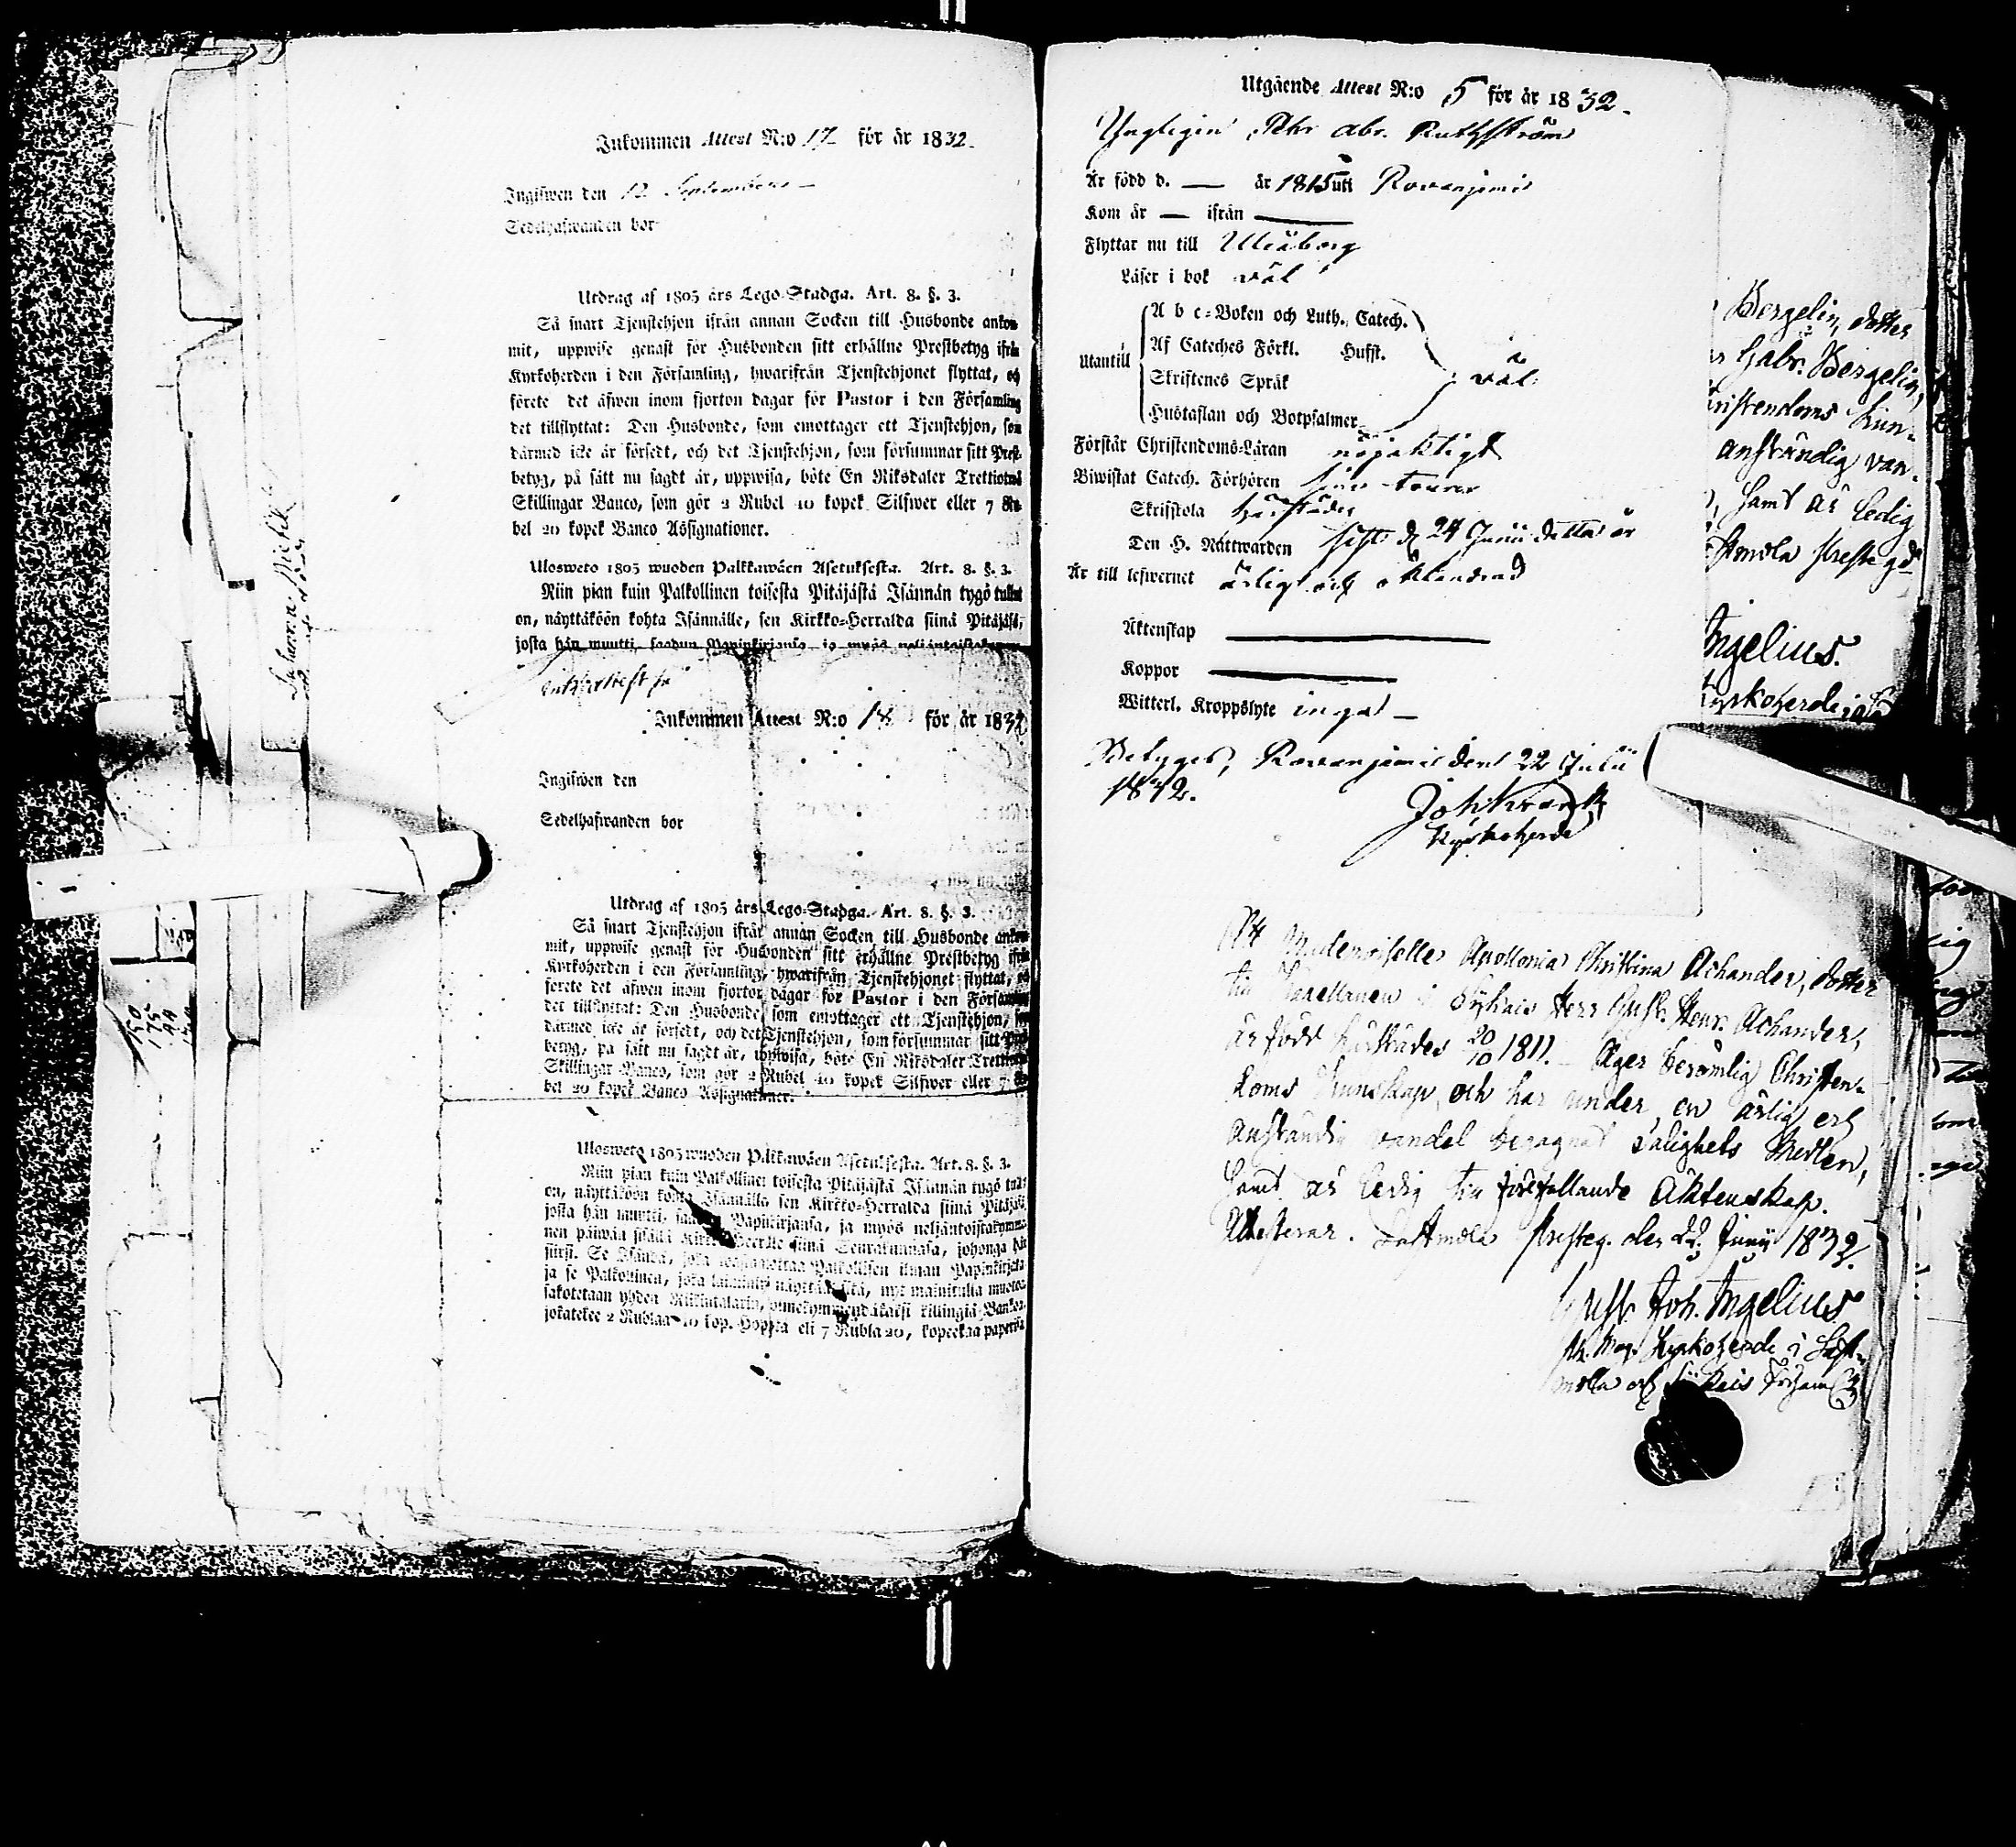 Inkommen Attest N:o 17 för år 1832.
Ingifwen den 12 September
Sedelhafwanden bor
Utdrag af 1805 års Lego-Stadga. Art. 8. §. 3.
Så snart Tjenstehjon ifrån annan Socken till Husbonde ankom
mit, uppwise genast för Husbonden sitt erhållne Prestbetyg ifrån
Kyrkoherden i den Församling, hwarifrån Tjenstehjonet flyttat, och
förete det äfwen inom fjorton dagar för Pastor i den Församling
det tillflyttat: Den Husbonde, som emottager ett Tjenstehjon, som
därmed icke är försedt, och det Tjenstehjon, som försummar sitt Prest-
betyg, på sätt nu sagdt är, uppwisa, böte En Riksdaler Trettiotwå
Skillingar Banco, som gör 2 Rubel 40 kopek Silfwer eller 7 Ru-
bel 20 kopek Banco Assignationer.
Ulosweto 1805 wuoden Palkkawäen Asetuksesta. Art. 8. §. 3.
Niin pian kuin Palkollinen toisesta Pitäjästä Isännän tygö tullut
on, näyttäköön kohta Isännälle, sen Kirkko-Herralda siinä Pitäjäsä,
josta hän muutti, saadun Papinkirjansa, ja myös neljäntoistakymme
Inkommen Attest N:o 18 för år 1832
Ingifwen den
Sedelhafwanden bor
Utdrag af 1805 års Lego-Stadga. Art. 8. §. 3.
Så snart Tjenstehjon ifrån annan Socken till Husbonde ankom
mit, uppwise genast för Husbonden sitt erhållne Prestbetyg ifrån
Kyrkoherden i den Församling, hwarifrån Tjenstehjonet flyttat, och
förete det äfwen inom fjorton dagar för Pastor i den Församling
det tillflyttat: Den Husbonde, som emottager ett Tjenstehjon, som
därmed icke är försedt, och det Tjenstehjon, som försummar sitt Prest-
betyg, på sätt nu sagdt är, uppwisa, böte En Riksdaler Trettiotwå
Skillingar Banco, som gör 2 Rubel 40 kopek Silfwer eller 7 Ru-
bel 20 kopek Banco Assignationer.
Ulosweto 1805 wuoden Palkkawäen Asetuksesta. Art. 8. §. 3.
Niin pian kuin Palkollinen toisesta Pitäjästä Isännän tygö tullut
on, näyttäköön kohta Isännälle sen Kirkko-Herralda siinä Pitäjäsä
josta hän muutti, saadun Papinkirjansa, ja myös neljäntoistakymme
nen päiwän sisällä Kirkko-Herralle siinä Seurakunnasa, johonga hän
siirsi. Se Isändä, joka wastaanottaa Palkollisen ilman Papinkirjata
ja se Palkollinen, joka laiminlyö näyttää sitä, nyt mainitulla muotoa
sakotetaan yhden Riikintalarin, kolmekymmendäkaksi killingiä Bankos
jokatekee 2 Rublaa 40 kop. Hopjata eli 7 Rubla 20, kopeekaa paperisa
Utgående Attest N:o 5 för år 1832.
Ynglingen Pehr Abr. Ruthström
Är född d. — år 1815 uti Rovaniemi
Kom år — ifrån —
Flyttar nu till Uleåborg
Läser i bok väl
Utantill
A b c-Boken och Luth. Catech.
Af Cateches Förkl. Hufst.
Skriftenes Språk
Hustaflan och Botpsalmer
väl
Förstår Christendoms-Läran nöjaktigt
Biwistat Catech. Förhören
Skriftskola härstädes
Den H. Nattwarden sist d 24 Junii detta år
Är till lefwernet ärlig och oklandrad
Äktenskap —
Koppor —
Witterl. Kroppslyte inga —
Betygar, Rovaniemi den 22 Julii
1832.
Kyrkoherde
Att Mademoiselle Apollonia Christina Achander, dotter
till Capellanen i Sykäis Herr Gust. Henr. Achander,
är född härstädes 20/10 1811. Äger berömlig Christen-
doms kunskap, och har under en ärlig och
anständig vandel begagnat Salighets Medlen,
samt är ledig till förefallande Äktenskap.
Attesterar. Lastmola Presteg. den 22 Junii 1832.
Gust. Joh. Ingelius
Kyrkoherde i Last-
mola och
Bergelin, dotter
Gabr. Bergelin,
hristendoms kun-
anständig van-
samt är ledig
stmola Prestegd
Ingelius.
Kyrkoherde i